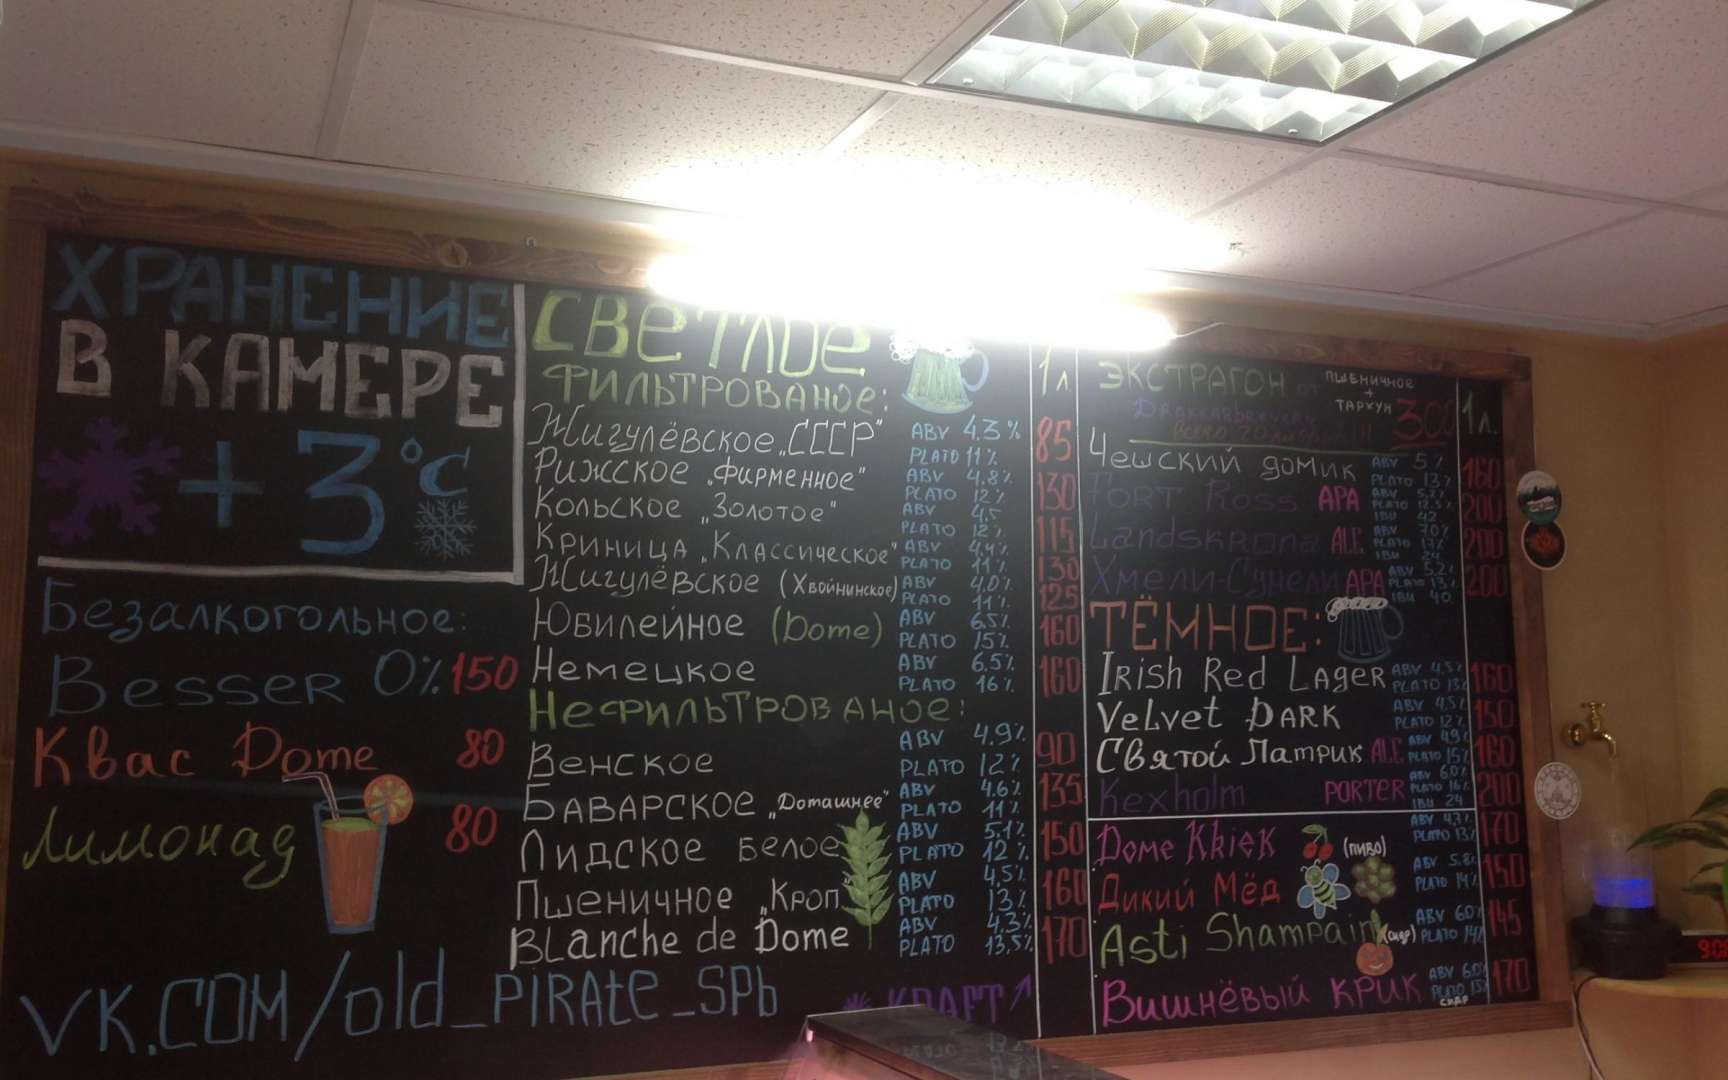 ХРАНЕНИЕ
В КАМЕРЕ
+3°C
Безалкогольное:
Besser 0% 150
Квас Dоме 80
Лимонад 80
VK.COM/old_PIRATE_SPb
СВЕТЛОЕ 1л
ФИЛЬТРОВАНОЕ:
Жигулёвское „СССР" ABV 4.3% PLATO 11% 85
Рижское „Фирменное" ABV 4.8% PLATO 12% 130
Кольское „Золотое" ABV 4.5 PLATO 12% 115
Криница „Классическое" ABV 4,4% PLATO 11% 130
Жигулёвское (Хвойнинское) ABV 4,0% PLATO 11% 125
Юбилейное (Dome) ABV 6,5% PLATO 15% 160
Немецкое ABV 6,5% PLATO 16% 160
НЕФИЛЬТРОВАНОЕ:
Венское ABV 4.9% PLATO 12% 90
Баварское „Домашнее" ABV 4.6% PLATO 11% 135
Лидское белое ABV 5,1% PLATO 12% 150
Пшеничное „Кроп" ABV 4.5% PLATO 13% 160
BLanche de Dome ABV 4.3% PLATO 13,5% 170
KRAFT
ЭКСТРАГОН от ПШЕНИЧНОЕ + ТАРХУН 300 1л.
Чешский домик ABV 5% PLATO 13% 160
Fort Ross APA ABV 5,2% PLATO 12,5% IBU 42 200
Landskrona ALE PLATO 17% IBU 24 200
Хмели-Сунели APA ABV 5.2% PLATO 13% IBU 40 200
ТЁМНОЕ:
Irish Red Lager ABV 4,5% PLATO 13% 160
Velvet DARK ABV 4,5% PLATO 12% 150
Святой Патрик ALE ABV 4,9% PLATO 15% 160
Kexholm PORTER ABV 6.0% PLATO 16% IBU 24 200
Dome Kriek (пиво) ABV 4.3% PLATO 13% 170
Дикий Мёд ABV 5.8% PLATO 14% 150
Asti Shampain (сидр) ABV 6.0% PLATO 14% 145
Вишнёвый крик ABV 6.0% PLATO 15% сидр 170